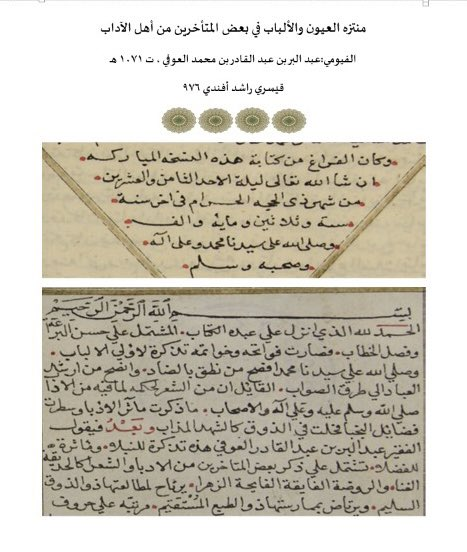 منتزه العيون والألباب في بعض المتأخرين من أهل الآداب
الفيومي:عبد البر بن عبد القادر بن محمد العوفي ، ت ١٠٧١ هـ
قيسري راشد أفندي ٩٧٦
وكان الفراغ من كتابة هذه النسخه المباركه
ان شا الله تعالى ليلة الاحد الثامن والعشرين
من شهر ذي الحجه الحرام في اخر سنة
ستة وثلاثين ومايه والف
وصلى الله على سيدنا محمد وعلى آله
وصحبه وسلم
بسم الله الرحمن الرحيم
الحمد لله الذي انزل على عبده الكتاب المشتمل على حسن البراعة
وفصل الخطاب وصارت فواتحه وخواتمه تذكرة لاولي الالباب
وصلى الله على سيدنا محمد افصح من نطق بالضاد وانصح من ارشد
العباد الي طرق الصواب القائل ان من الشعر لحكمه لما فيه من الاداب
صلى الله وسلم عليه وعلى آله والاصحاب ما ذكرت مآثر الادبا وسطرت
فضائل النجبا فحلت في الذوق كالشهد المذاب وبعد فيقول
الفقير عبد البر بن عبد القادر العوفي هذه تذكرة للنبلا وثمائرة
للفضلا تشتمل على ذكر بعض المتاخرين من الادبا والشعرا كالحديقة
الغنا والروضة الفايقة الفايحة الزهرا يرتاح لمطالعتها ذو الذوق
السليم ويرتاض بممارستها ذو الطبع المستقيم مرتبة على حروف